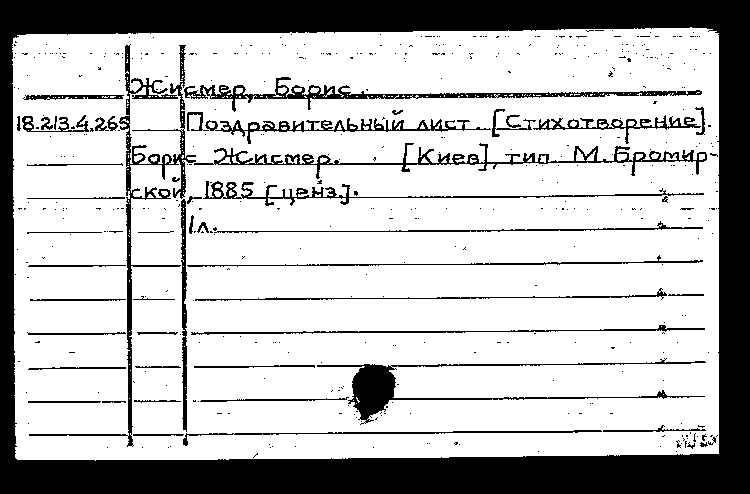 Жисмер, Борис.
18.213.4.265 Поздравительный лист. [Стихотворение].
Борис Жисмер. [Киев], тип. М. Бромир-
ской, 1885 [ценз.].
1 л.